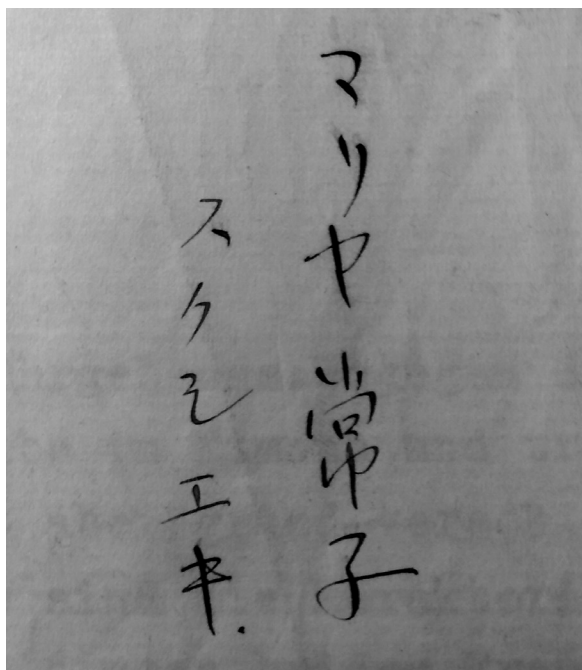 マリヤ常子
スクモエキ.